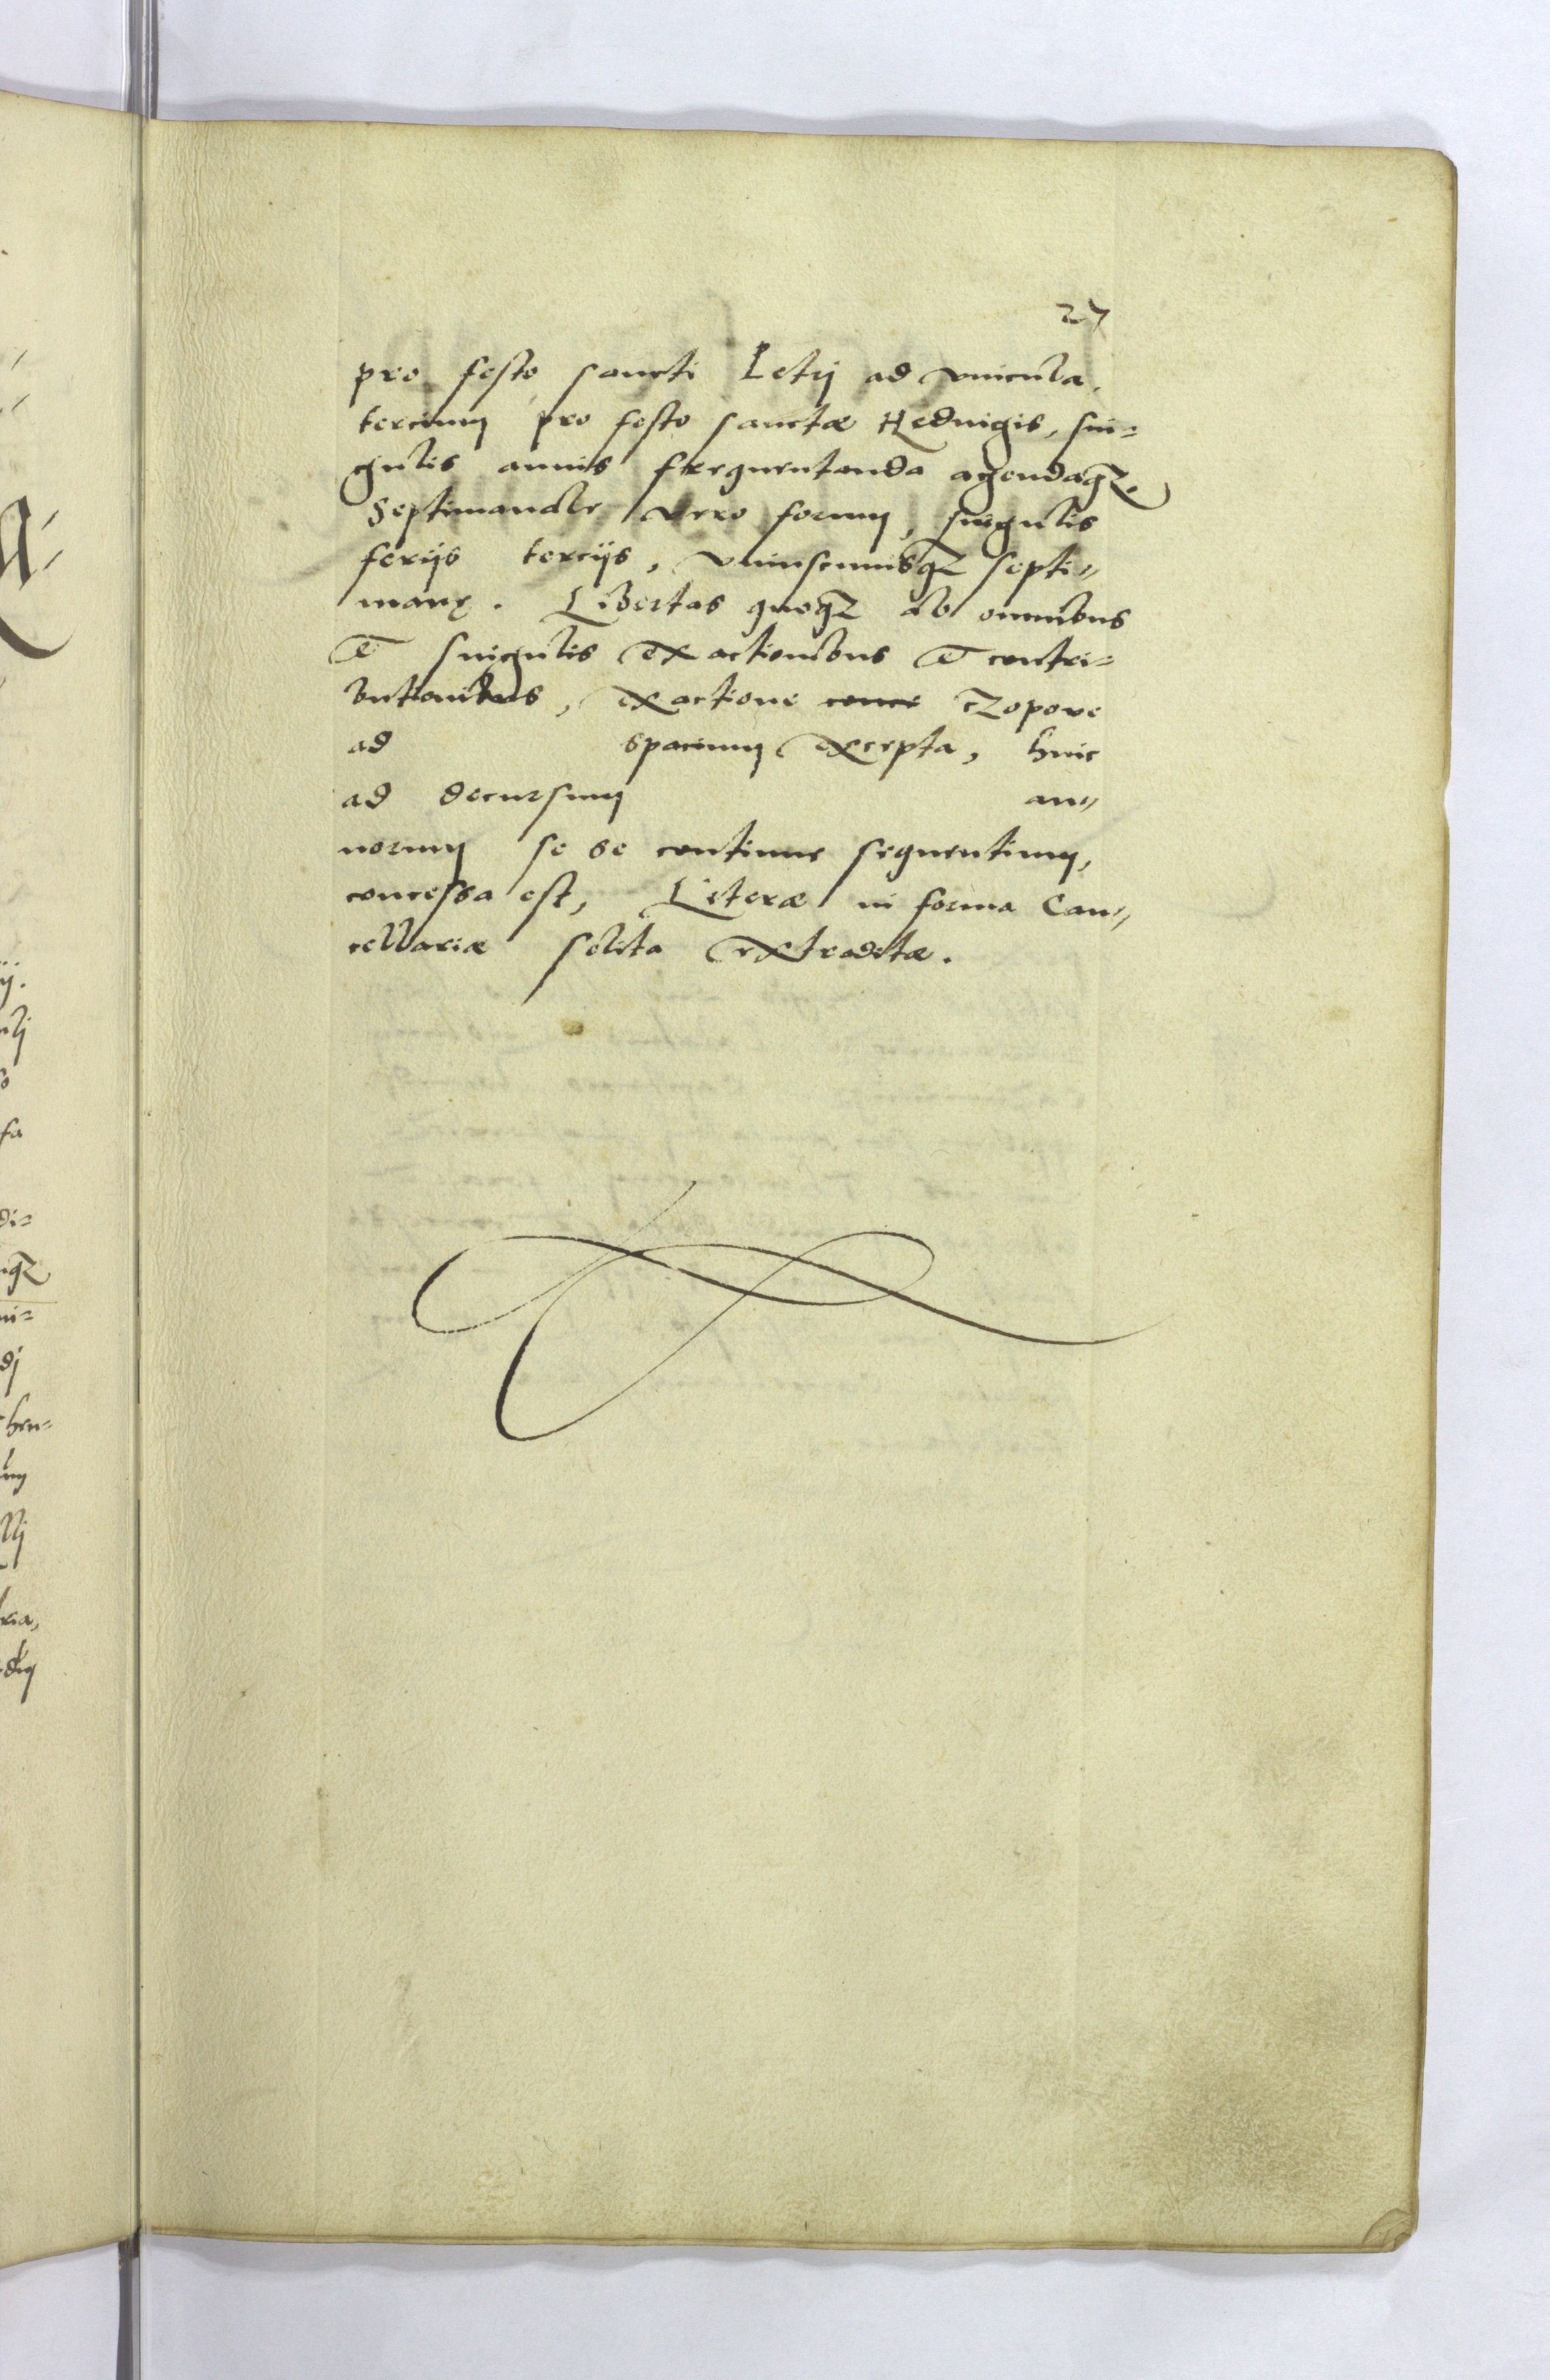 27
pro festo sancti Petrj ad vincula,
tercium pro festo sanctæ Hedvigis, sin=
gulis annis frequentanda agendaqz.
Septimanale vero forum, singulis
ferijs tercijs, vniuscuiusqz septi„
manę. Libertas quoqz ab omnibus
et singulis exactionibus et contri=
butionibus, exactione conce czopove
ad spacium excepta, huic
ad decursum an„
norum se se continue sequentium,
concessa est, Literæ in forma Can„
cellariæ solita extraditæ.